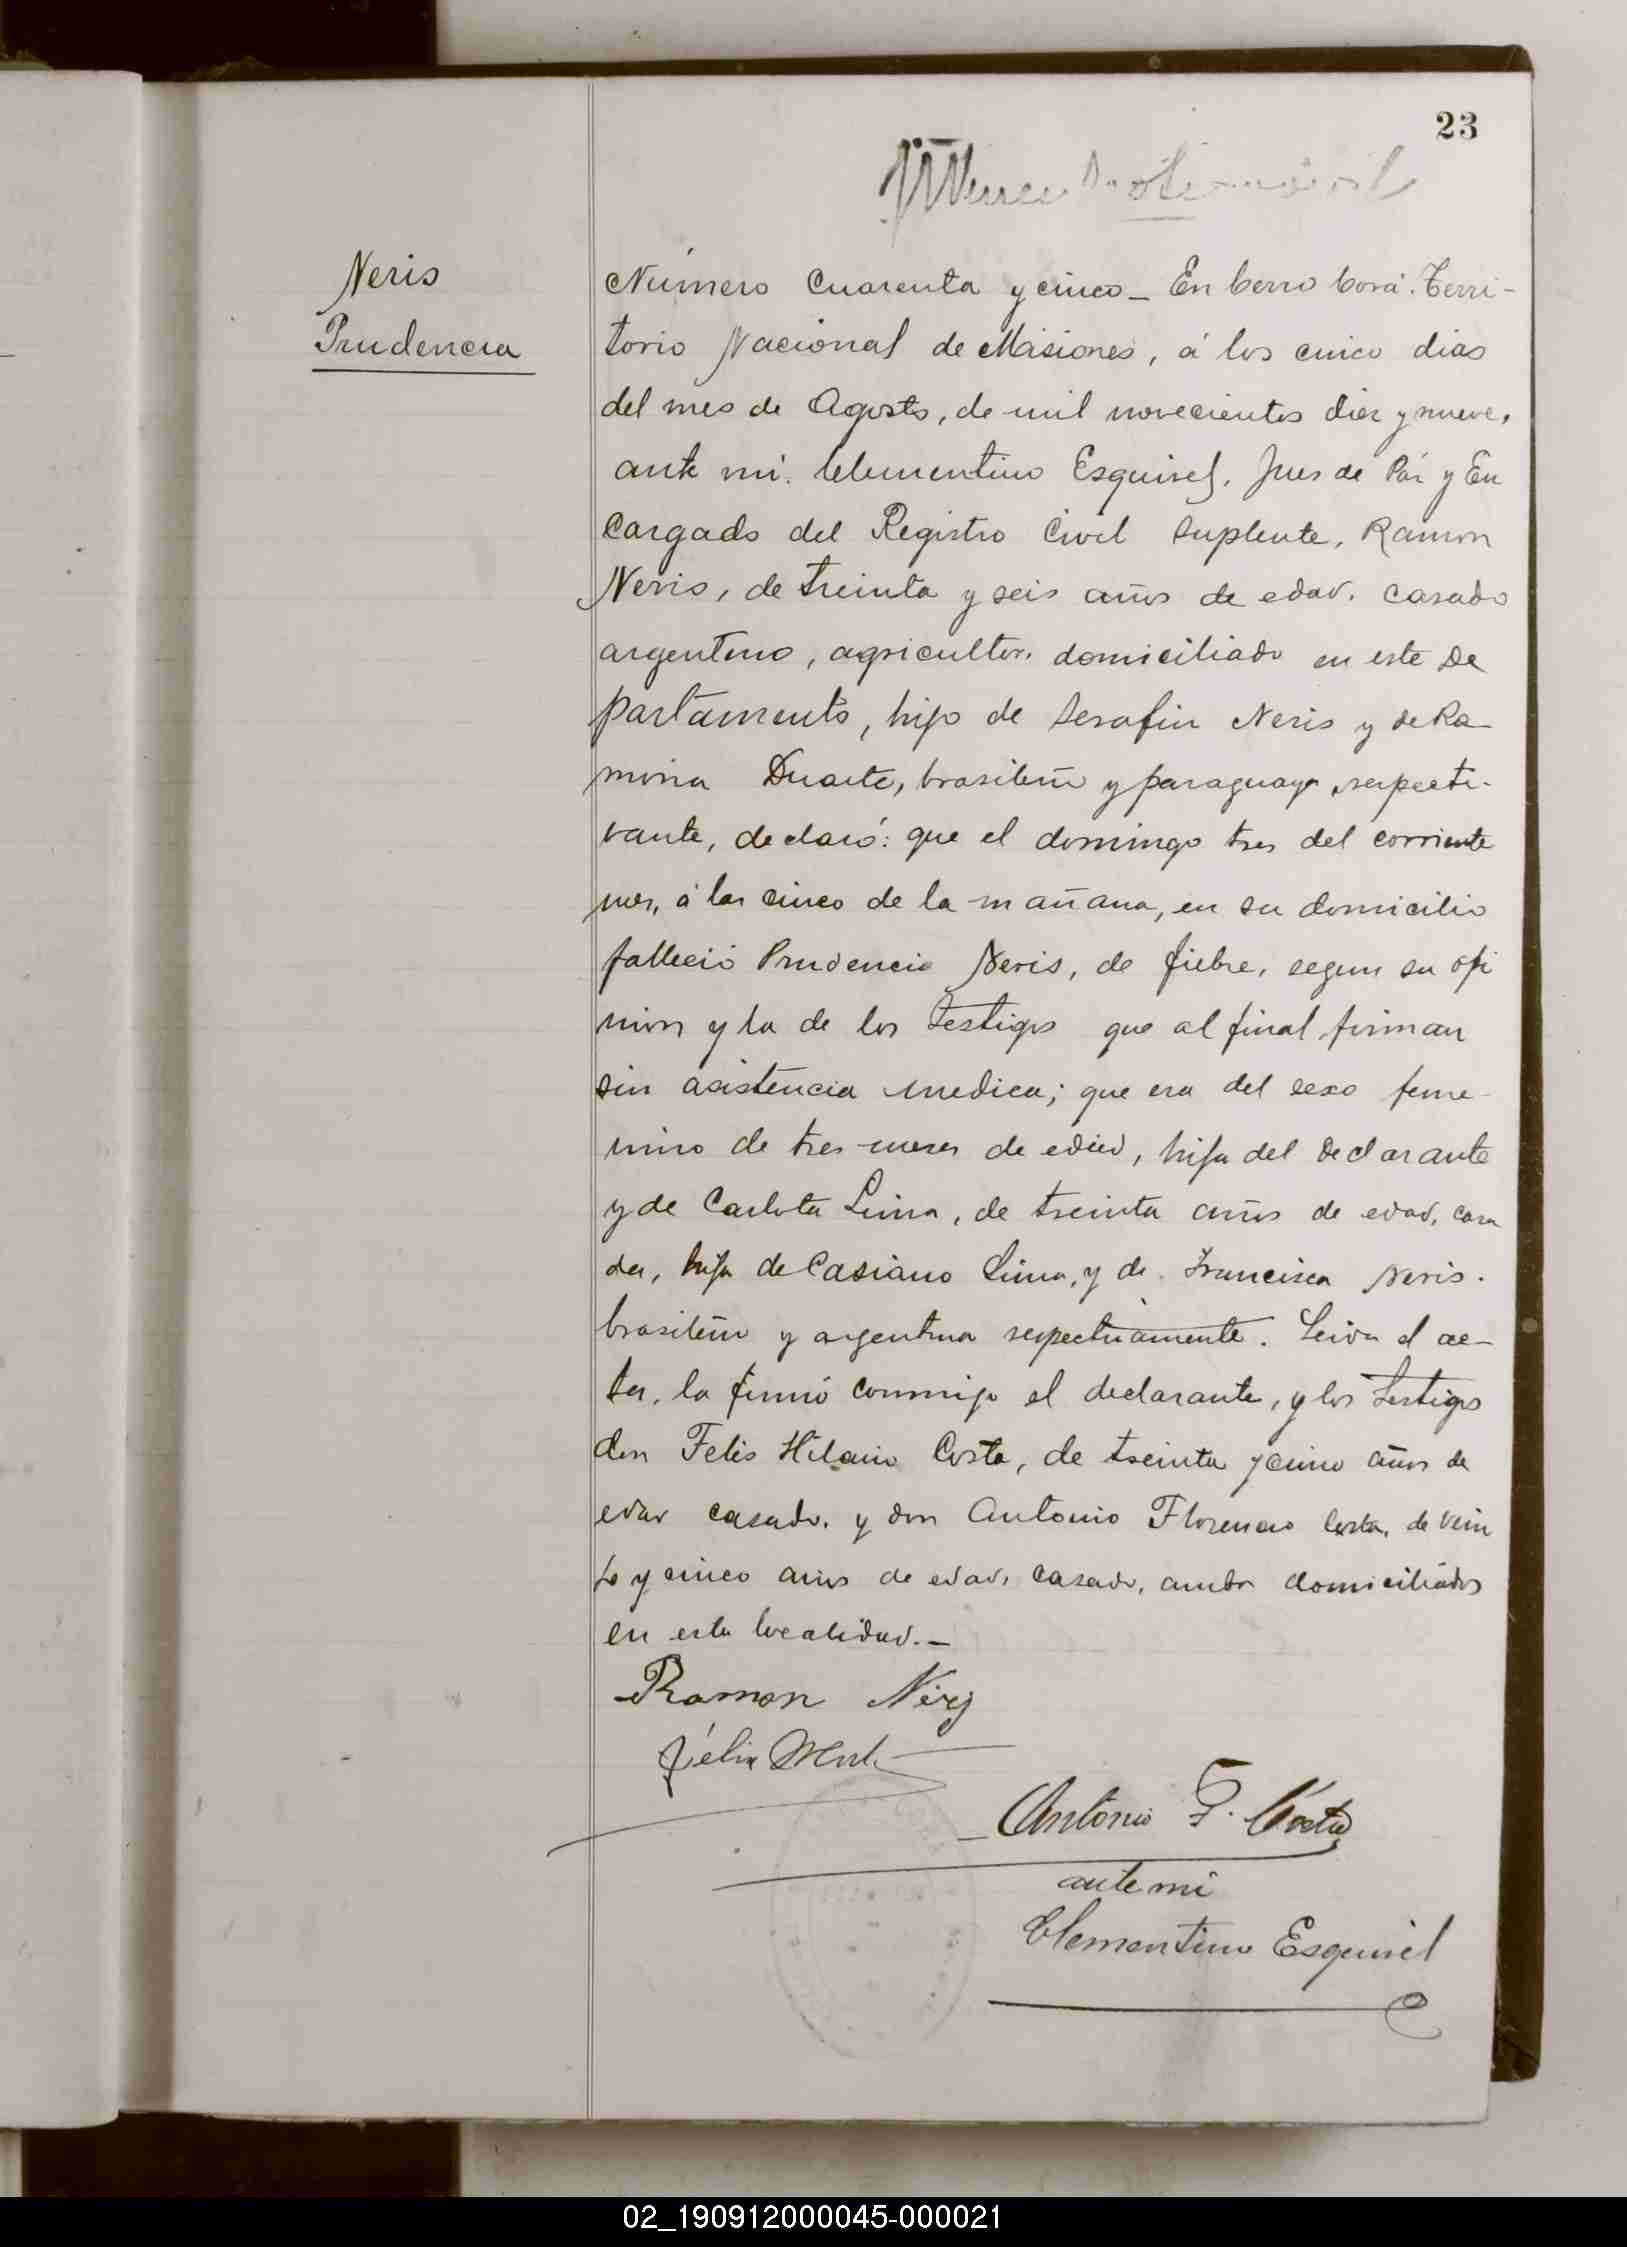 23
Neris
Prudencia
Número Cuarenta y cinco_ En Cerro Corá. Terri-
torio Nacional de Misiones, á los cinco dias
del mes de Agosto, de mil novecientos diez y nueve,
ante mi. Clementino Esquivel, Jues de Páz y En
cargado del Registro Civil Suplente, Ramon
Neris, de treinta y seis años de edad. casado
argentino, agricultor. domiciliado en este De
partamento, hijo de Serafin Neris y de Ra-
mona Duarte, brasileño y paraguaya respecti-
vante, declaró: que el domingo tres del corriente
mes, á las cinco de la mañana, en su domicilio
falleció Prudencia Neris, de fiebre, segun su opi
nion y la de los testigos que al final firman
sin asistencia medica; que era del sexo feme-
nino de tres meses de edad, hija del declarante
y de Carlota Lima, de treinta años de edad, casa
da, hija de Casiano Lima, y de Francisca Neris.
brasileño y argentina respectivamente. Leida el ac-
ta, la firmó conmigo el declarante, y los testigos
don Felis Hilario Costa, de treinta y cinco años de
edad casado. y don Antonio Florencio Costa, de vein
te y cinco años de edad, casado, ambos domiciliados
en esta localidad._
Ramon Neris
Félix
Antonio F. Costa
ante mi
Clementino Esquivel
02_190912000045-000021